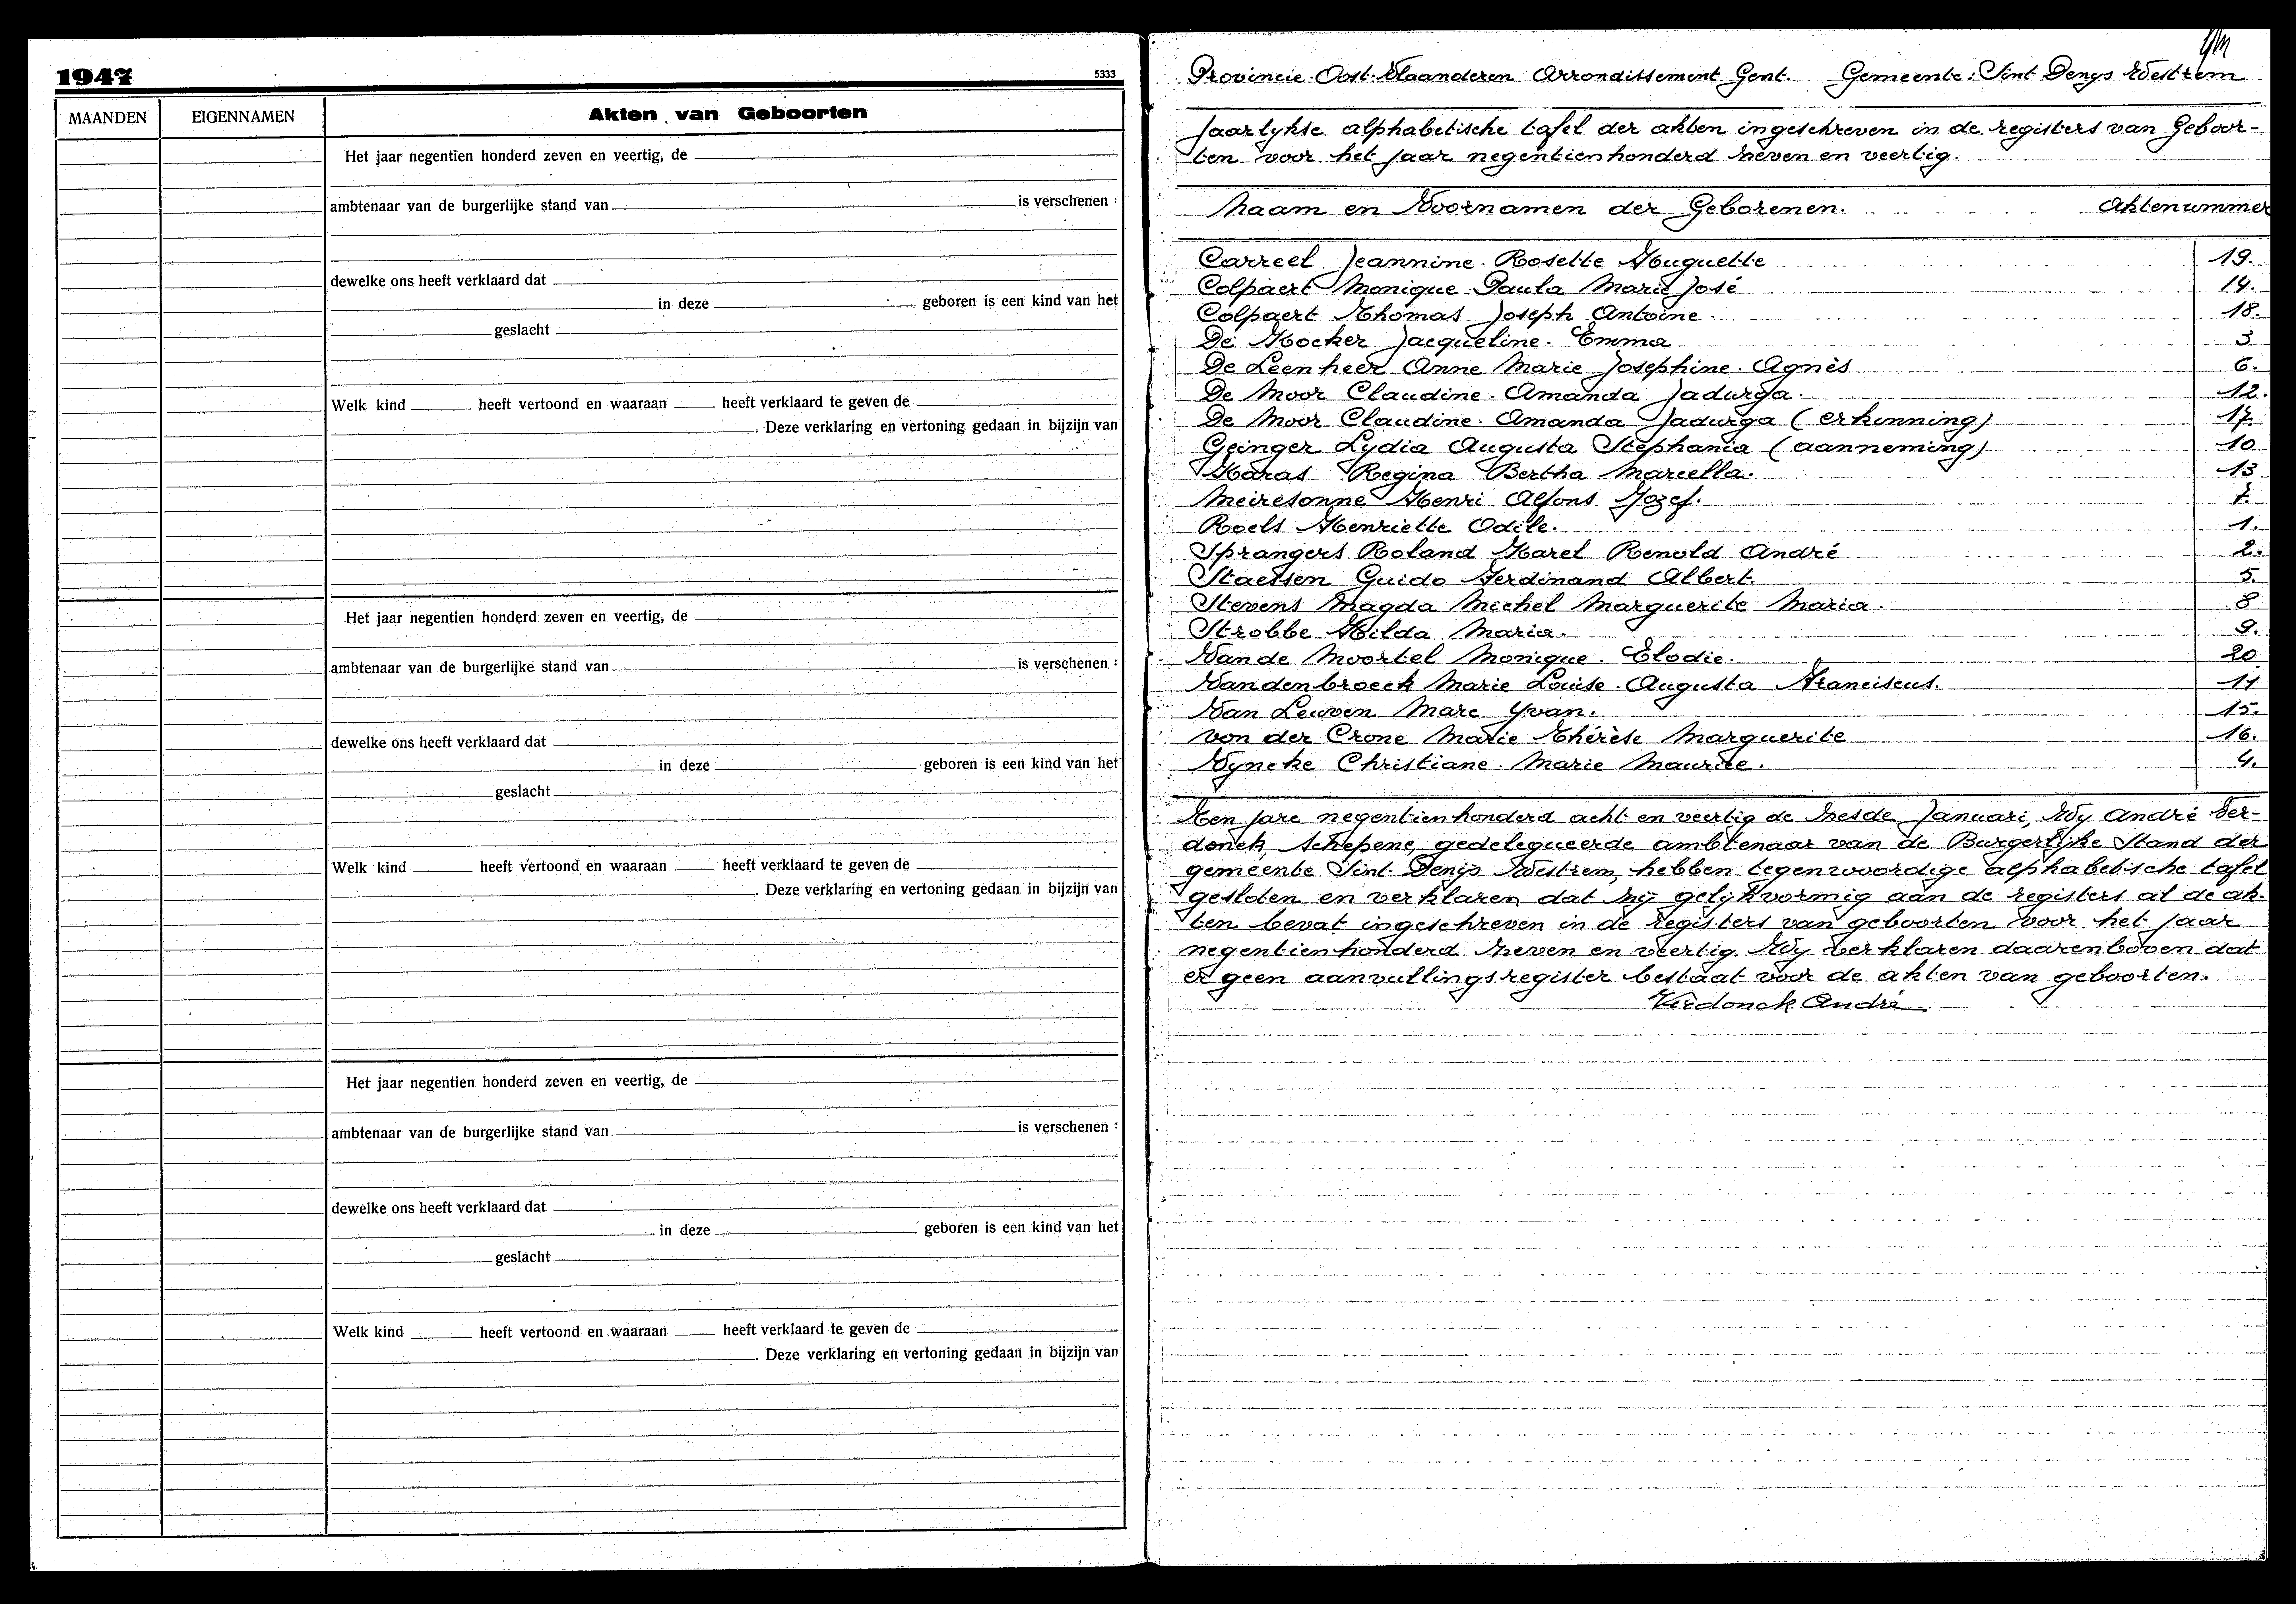 1947
5333
MAANDEN EIGENNAMEN Akten van Geboorten
Het jaar negentien honderd zeven en veertig, de
ambtenaar van de burgerlijke stand van is verschenen :
dewelke ons heeft verklaard dat
in deze geboren is een kind van het
geslacht
Welk kind heeft vertoond en waaraan heeft verklaard te geven de
. Deze verklaring en vertoning gedaan in bijzijn van
Het jaar negentien honderd zeven en veertig, de
ambtenaar van de burgerlijke stand van is verschenen :
dewelke ons heeft verklaard dat
in deze geboren is een kind van het
geslacht
Welk kind heeft vertoond en waaraan heeft verklaard te geven de
. Deze verklaring en vertoning gedaan in bijzijn van
Het jaar negentien honderd zeven en veertig, de
ambtenaar van de burgerlijke stand van is verschenen :
dewelke ons heeft verklaard dat
in deze geboren is een kind van het
geslacht
Welk kind heeft vertoond en waaraan heeft verklaard te geven de
. Deze verklaring en vertoning gedaan in bijzijn van
Provincie Oost-Vlaanderen Arrondissement Gent. Gemeente: Sint Denys Westrem
Jaarlykse alphabetische tafel der akten ingeschreven in de registers van Geboor-
ten voor het jaar negentienhonderd zeven en veertig.
Naam en Voornamen der Geborenen. Aktenummer
Carreel Jeannine Rosette Huguette 19.
Colpaert Monique Paula Marie José 14.
Colpaert Thomas Joseph Antoine 18.
De Hocker Jacqueline Emma 3
De Leenheer Anne Marie Josephine Agnès 6.
De Moor Claudine Amanda Jadurga. 12.
De Moor Claudine Amanda Jadurga (erkenning) 17.
Geinger Lydia Augusta Stephania (aanneming) 10
Haras Regina Bertha Marcella. 13
Meiresonne Henri Alfons Jozef. 7.
Roels Henriette Odile. 1.
Sprangers Roland Karel Renold André 2.
Staessen Guido Ferdinand Albert. 5.
Stevens Magda Michel Marguerite Maria. 8
Strobbe Hilda Maria. 9.
Van de Moortel Monique Elodie. 20
Vandenbroeck Marie Louise Augusta Franciscus. 11
Van Leuven Marc Yvan. 15.
von der Crone Marie Thérèse Marguerite 16.
Vyncke Christiane Marie Maurice. 4.
Ten jare negentienhonderd acht en veertig de zesde Januari, Wy André Ver-
donck, schepene, gedelegueerde ambtenaar van de Burgerlijke Stand der
gemeente Sint Denijs Westrem, hebben tegenwoordige alphabetische tafel
gesloten en verklaren dat zij gelijkvormig aan de registers al de ak-
ten bevat ingeschreven in de registers van geboorten voor het jaar
negentienhonderd zeven en veertig. Wy verklaren daarenboven dat
er geen aanvullingsregister bestaat voor de akten van geboorten.
Verdonck André